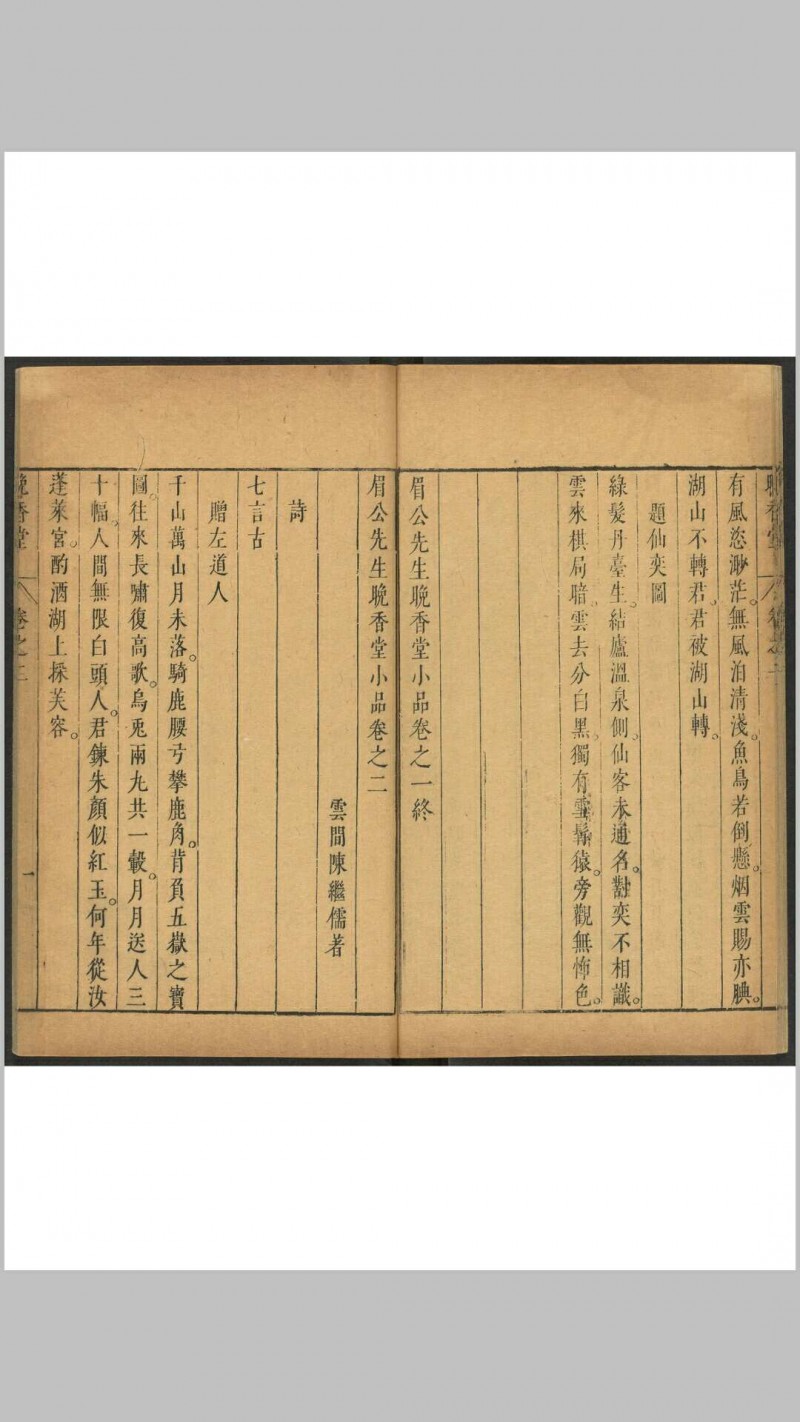 有風恣渺茫。無風泊清淺。魚鳥若倒懸。烟雲賜亦腆。
湖山不轉君。君被湖山轉。
題仙奕圖
綠髮丹臺生。結廬溫泉側。仙客未通名。對奕不相識。
雲來棋局暗。雲去分白黑。獨有雪鬅猿。旁觀無怖色。
眉公先生晚香堂小品卷之一終
眉公先生晚香堂小品卷之二
雲間陳繼儒著
詩
七言古
贈左道人
千山萬山月未落。騎鹿腰弓攀鹿角。背負五嶽之寶
圖。往來長嘯復高歌。烏兎兩丸共一轂。月月送人三
十幅。人間無限白頭人。君鍊朱顏似紅玉。何年從汝
蓬萊宮。酌酒湖上採芙容。
晚香堂 卷之二 一